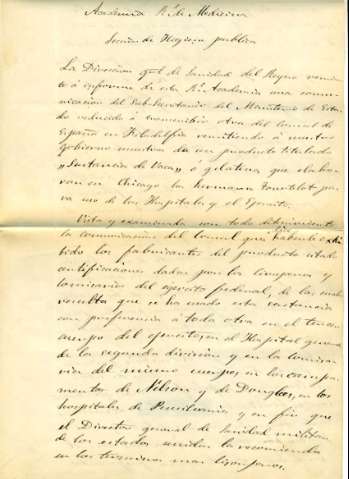 Academia Rl. de Medicina
Sección de Higiene publica
La Direccion gral de Sanidad del Reyno remite
á informe de esta Rl. Academia una comu-
nicacion del Sub-Secretario del Ministerio de Esta-
do reducida á otra del Consul de
España en Filadelfia remitiendo á nuestro
Gobierno muestra de un producto titulado
"Sustancia de Vaca" ó gelatina que elabo-
ran en Chicago los hermanos pa-
ra uso de los Hospitales y el Ejercito.
Vista y examinada con todo detenimiento
la comunicacion del Consul que habiendo exhi-
bido los fabricantes del producto citado
certificaciones dadas por los Cirujanos y
Comisarios del ejercito federal, de las cuales
resulta que se ha usado esta sustancia
con preferencia á toda otra en el tercer
cuerpo del ejercito, en el Hospital general
de la segunda división y en la Comisa-
ria del mismo cuerpo, en los campa-
mentos de Nelson y de Douglas, en los
hospitales de Pensilvania y en fin que
el Director general de Sanidad militar
de los estados unidos la recomienda
en los terminos mas lisonjeros.